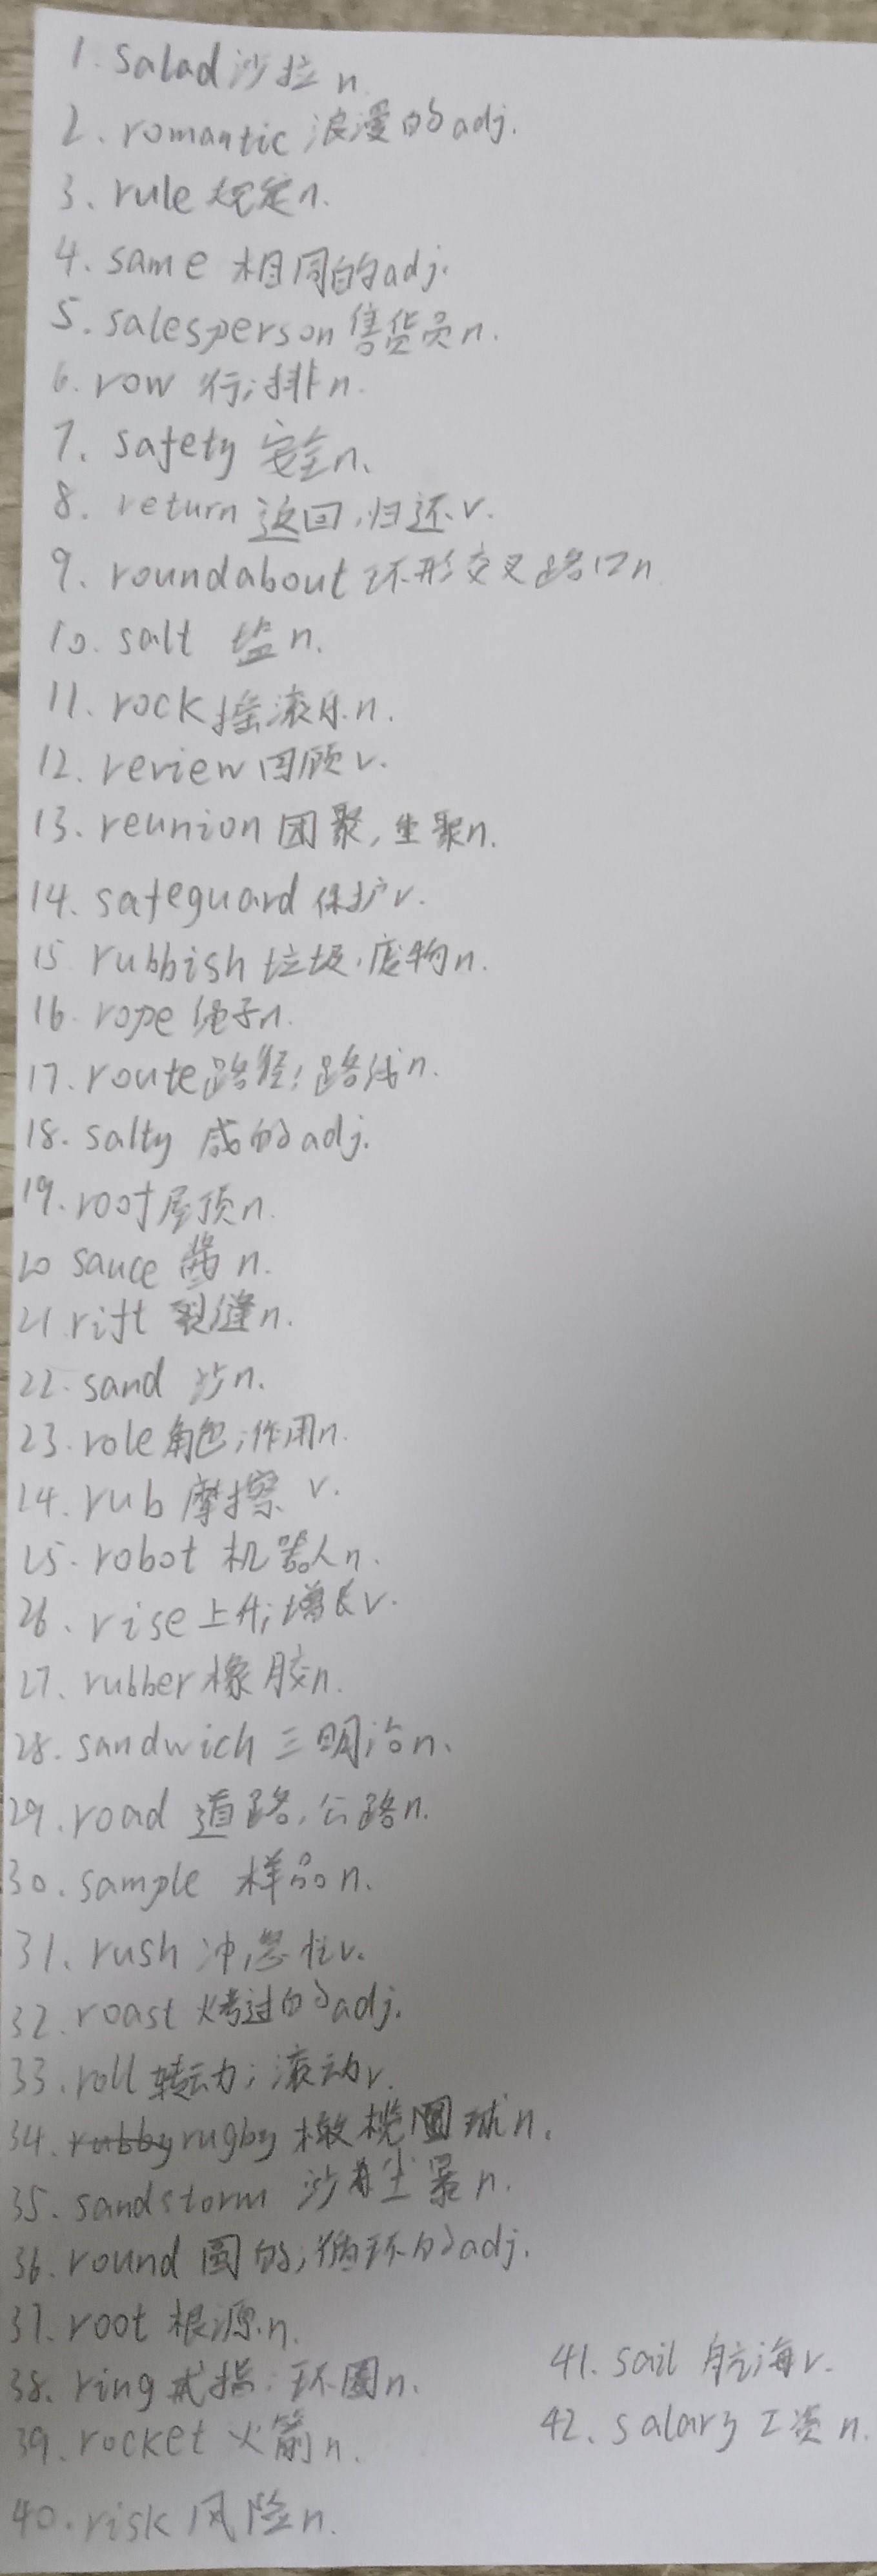 1. salad 沙拉 n.
2. romantic 浪漫的 adj.
3. rule 规定 n.
4. same 相同的 adj.
5. salesperson 售货员 n.
6. row 行;排 n.
7. safety 安全 n.
8. return 返回,归还 v.
9. roundabout 环形交叉路口 n
10. salt 盐 n.
11. rock 摇滚乐 n.
12. review 回顾 v.
13. reunion 团聚,重聚 n.
14. safeguard 保护 v.
15 rubbish 垃圾,废物 n.
16. rope 绳子 n.
17. route 路径;路线 n.
18. salty 咸的 adj.
19. roof 屋顶 n.
20 sauce 酱 n.
21 rift 裂缝 n.
22. sand 沙 n.
23. role 角色;作用 n.
24. rub 摩擦 v.
25. robot 机器人 n.
26. rise 上升;增长 v.
27. rubber 橡胶 n.
28. sandwich 三明治 n.
29. road 道路,公路 n.
30. sample 样品 n.
31. rush 冲,急忙 v.
32. roast 烤过的 adj.
33. roll 转动;滚动 v.
34. rubby rugby 橄榄圆球 n.
35. sandstorm 沙尘暴 n.
36. round 圆的;循环的 adj.
37. root 根源 n.
38. ring 戒指;环圈 n.
39. rocket 火箭 n.
40. risk 风险 n.
41. sail 航海 v.
42. salary 工资 n.